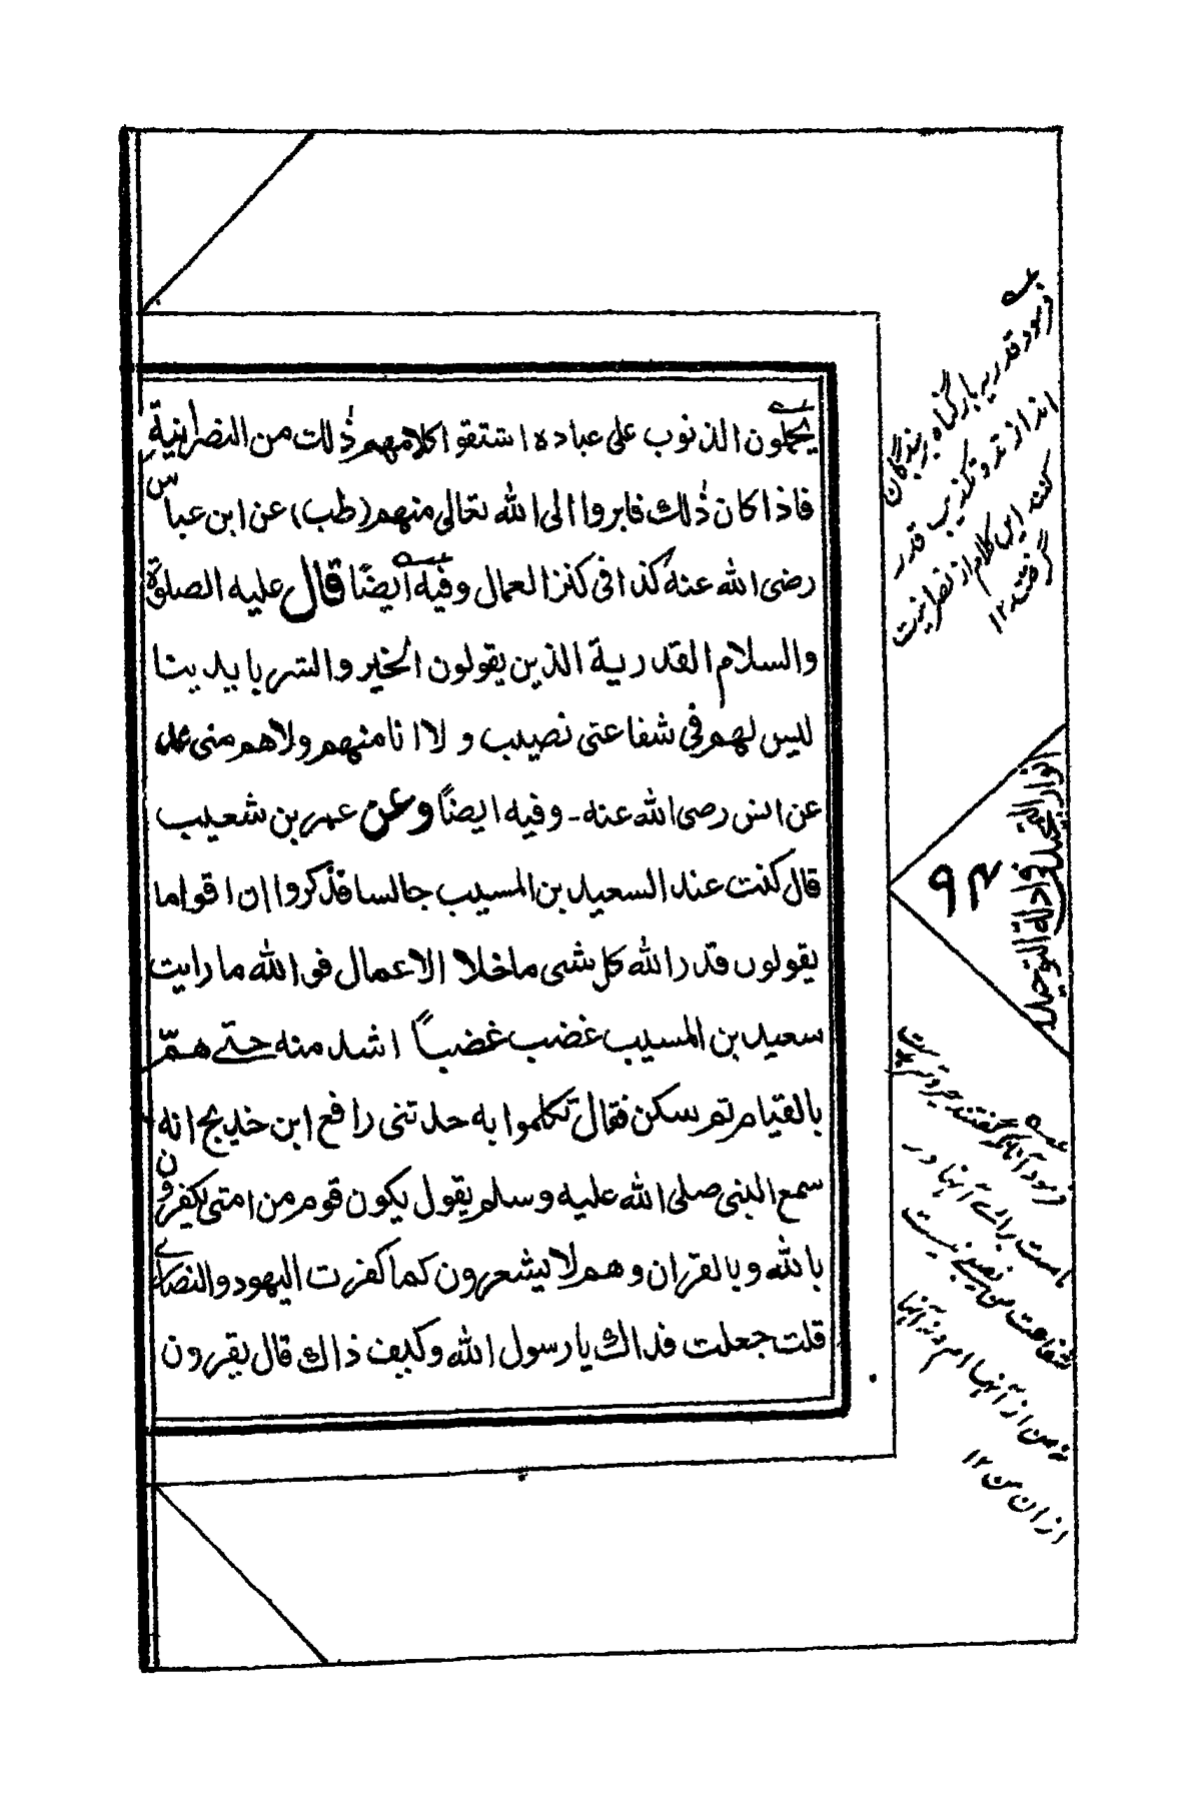 يحملون الذنوب على عباده اشتقوا كلامهم ذٰلك من النصرانية
فاذا كان ذٰلك فابروا الى الله تعالى منهم (طب) عن ابن عباس
رضى الله عنه كذا فى كنز العمال وفيه ايضًا قال عليه الصلوة
والسلام القدرية الذين يقولون الخير والشر بايدينا
ليس لهم فى شفاعتى نصيب ولا انا منهم ولا هم منى عد
عن انس رضى الله عنه - وفيه ايضًا وعن عمر بن شعيب
قال كنت عند السعيد بن المسيب جالسا فذكروا ان اقواما
يقولون قدر الله كل شى ما خلا الاعمال فو الله ما رايت
سعيد بن المسيب غضب غضباً اشد منه حتے همّ
بالقيام ثم سكن فقال تكلموا به حدثنى رافع ابن خديج انه
سمع النبى صلى الله عليه وسلم يقول يكون قوم من امتى يكفرون
بالله وبالقران وهم لا يشعرون كما كفرت اليهود والنصارے
قلت جعلت فداك يا رسول الله وكيف ذاك قال يقرون
فرمود قدریه بار گناه بر بندگان
انداز ند و تکذیب قدر
کنند این کلام از نصرانیت
گرفتند ۱۲
۹۴
التوحيد
فرمود آنانکه گفتند خیر و شر
ماست برائے آنها در
شفاعت من نصیبے نیست
نه من از آنها ام و نه آنها
از ان من ۱۲